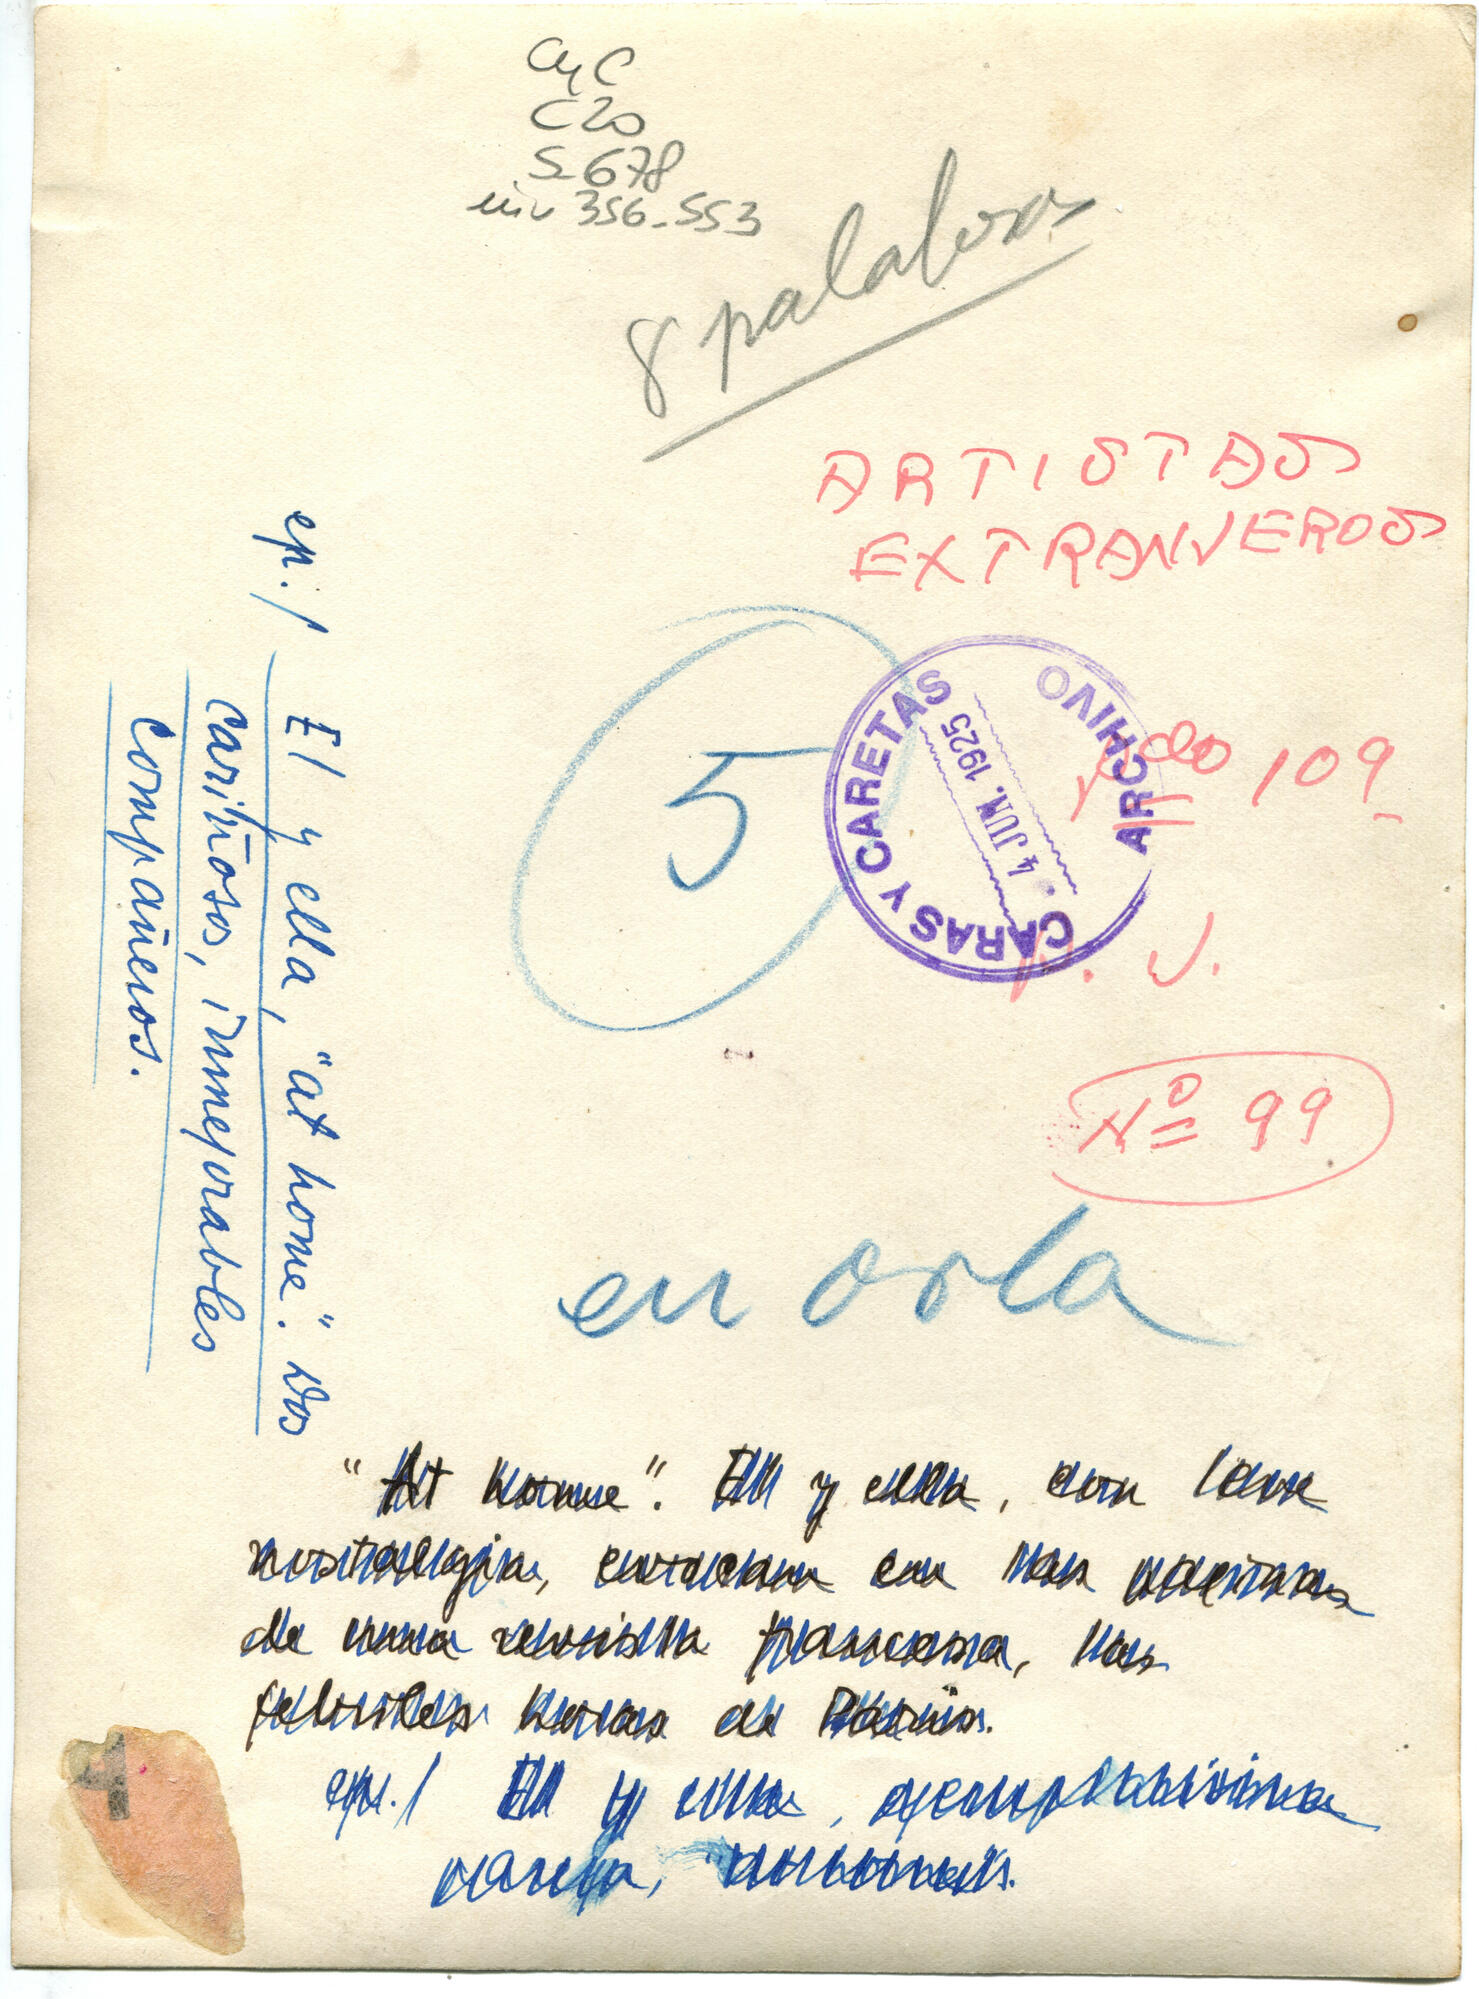 CyC
C20
S 678
inv 356-553
8 palabras
ARTISTAS
EXTRANJEROS
5
CARAS Y CARETAS
4 JUN. 1925
ARCHIVO
109
J.
Nº 99
en orla
ep./ El y ella, "at home". Dos
cariñosos, inmejorables
compañeros.
"At home". El y ella, con leve
nostalgia, evocan en las páginas
de una revista francesa, las
febriles horas de París.
ep./ El y ella, ejemplarísima
pareja,